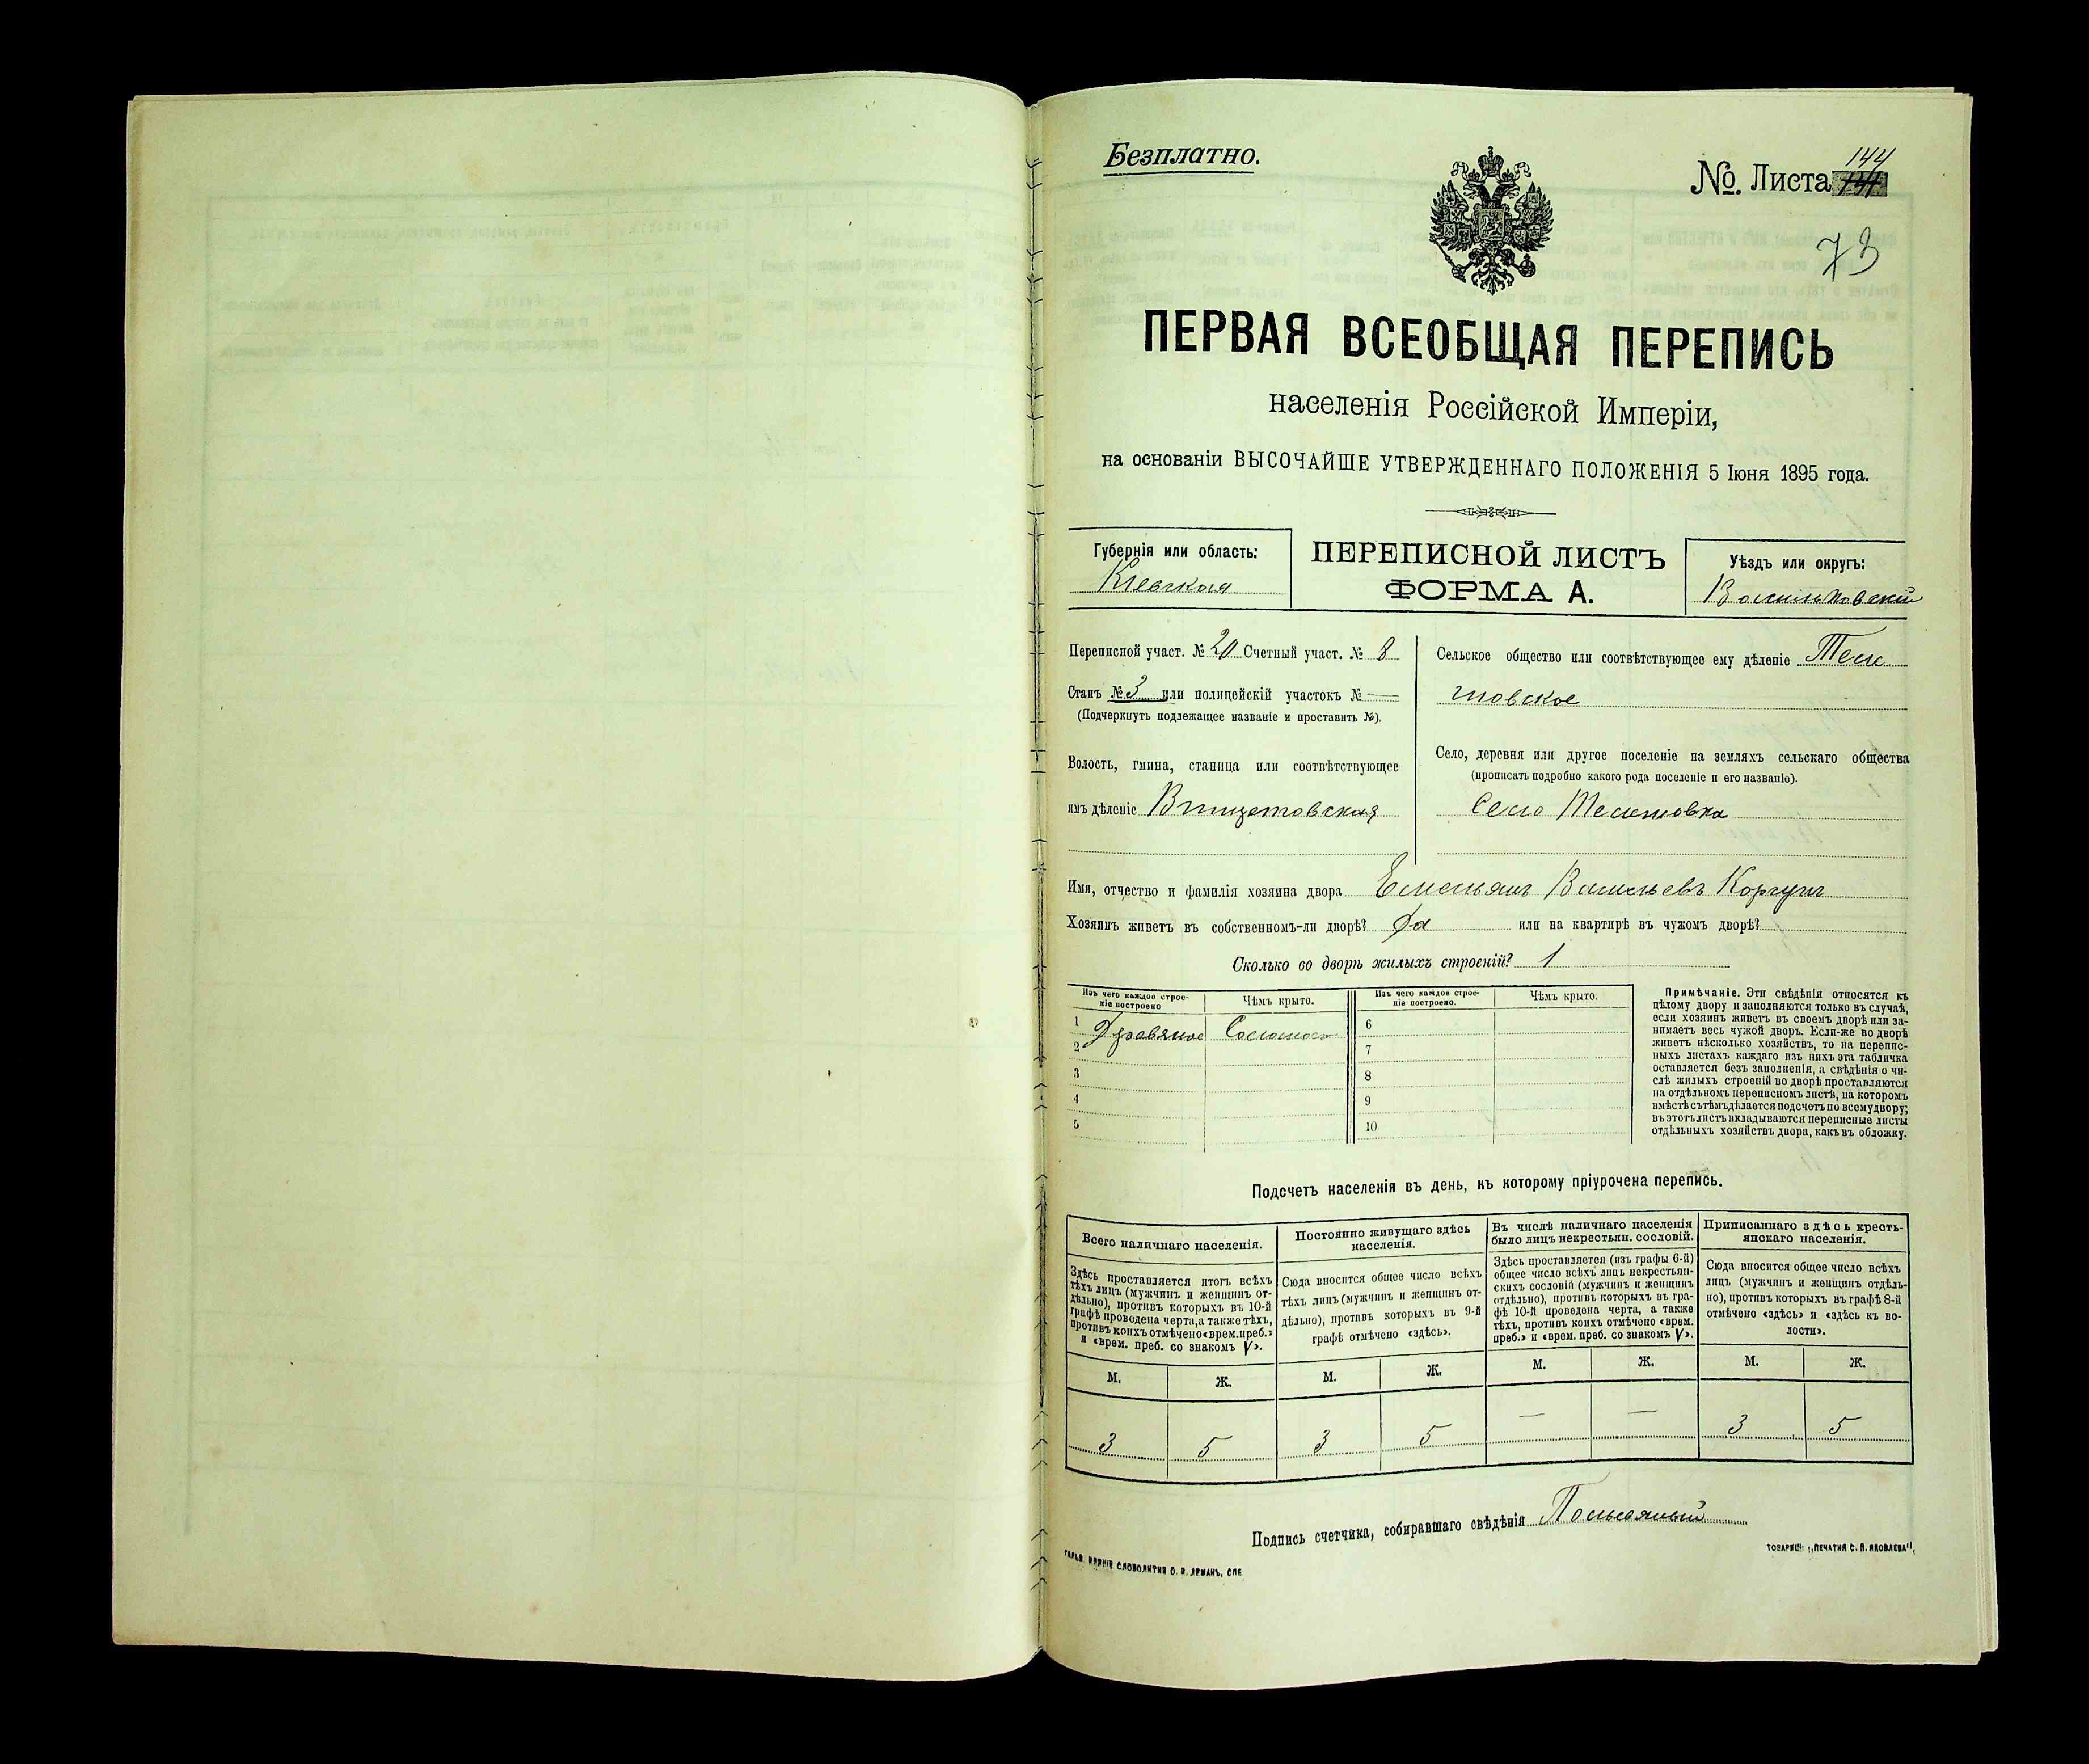 Безплатно.
№. Листа 144
73
ПЕРВАЯ ВСЕОБЩАЯ ПЕРЕПИСЬ
населенія Россійской Имперіи,
на основаніи ВЫСОЧАЙШЕ УТВЕРЖДЕННАГО ПОЛОЖЕНІЯ 5 Іюня 1895 года.
Губернія или область:
Кіевская
ПЕРЕПИСНОЙ ЛИСТЪ
ФОРМА А.
Уѣздъ или округъ:
Васильковскій
Переписной участ. № 20 Счетный участ. № 8
Станъ № 3 или полицейскій участокъ № —
(Подчеркнуть подлежащее названіе и проставить №).
Волость, гмина, станица или соотвѣтствующее
имъ дѣленіе Винцетовская
Сельское общество или соотвѣтствующее ему дѣленіе
товское
Село, деревня или другое поселеніе на земляхъ сельскаго общества
(прописать подробно какого рода поселеніе и его названіе).
Село
Имя, отчество и фамилія хозяина двора Емельянъ Васильевъ Коргунъ
Хозяинъ живетъ въ собственномъ-ли дворѣ? Да или на квартирѣ въ чужомъ дворѣ?
Сколько во дворѣ жилыхъ строеній? 1
Изъ чего каждое строе-
ніе построено
Чѣмъ крыто.
Изъ чего каждое строе-
ніе построено.
Чѣмъ крыто.
1 Деревяное Соломою
2
3
4
5
6
7
8
9
10
Примѣчаніе. Эти свѣдѣнія относятся къ
цѣлому двору и заполняются только въ случаѣ,
если хозяинъ живетъ въ своемъ дворѣ или за-
нимаетъ весь чужой дворъ. Если-же во дворѣ
живетъ нѣсколько хозяйствъ, то на перепис-
ныхъ листахъ каждаго изъ нихъ эта табличка
оставляется безъ заполненія, а свѣдѣнія о чи-
слѣ жилыхъ строеній во дворѣ проставляются
на отдѣльномъ переписномъ листѣ, на которомъ
вмѣстѣ съ тѣмъ дѣлается подсчетъ по всему двору;
въ этотъ листъ вкладываются переписные листы
отдѣльныхъ хозяйствъ двора, какъ въ обложку.
Подсчетъ населенія въ день, къ которому пріурочена перепись.
Всего наличнаго населенія.
Здѣсь проставляется итогъ всѣхъ
тѣхъ лицъ (мужчинъ и женщинъ от-
дѣльно), противъ которыхъ въ 10-й
графѣ проведена черта, а также тѣхъ,
противъ коихъ отмѣчено «врем. преб.»
и «врем. преб. со знакомъ V».
Постоянно живущаго здѣсь
населенія.
Сюда вносится общее число всѣхъ
тѣхъ лицъ (мужчинъ и женщинъ от-
дѣльно), противъ которыхъ въ 9-й
графѣ отмѣчено «здѣсь».
Въ числѣ наличнаго населенія
было лицъ некрестьян. сословій.
Здѣсь проставляется (изъ графы 6-й)
общее число всѣхъ лицъ некрестьян-
скихъ сословій (мужчинъ и женщинъ
отдѣльно), противъ которыхъ въ гра-
фѣ 10-й проведена черта, а также
тѣхъ, противъ коихъ отмѣчено «врем.
преб.» и «врем. преб. со знакомъ V».
Приписаннаго здѣсь кресть-
янскаго населенія.
Сюда вносится общее число всѣхъ
лицъ (мужчинъ и женщинъ отдѣль-
но), противъ которыхъ въ графѣ 8-й
отмѣчено «здѣсь» и «здѣсь къ во-
лости».
М. Ж. М. Ж. М. Ж. М. Ж.
3 5 3 5 — — 3 5
Подпись счетчика, собиравшаго свѣдѣнія
СЛОВОЛИТНЯ О. И. ЛЕМАНЪ, СПБ
ТОВАРИЩ. „ПЕЧАТНЯ С. П. ЯКОВЛЕВА",